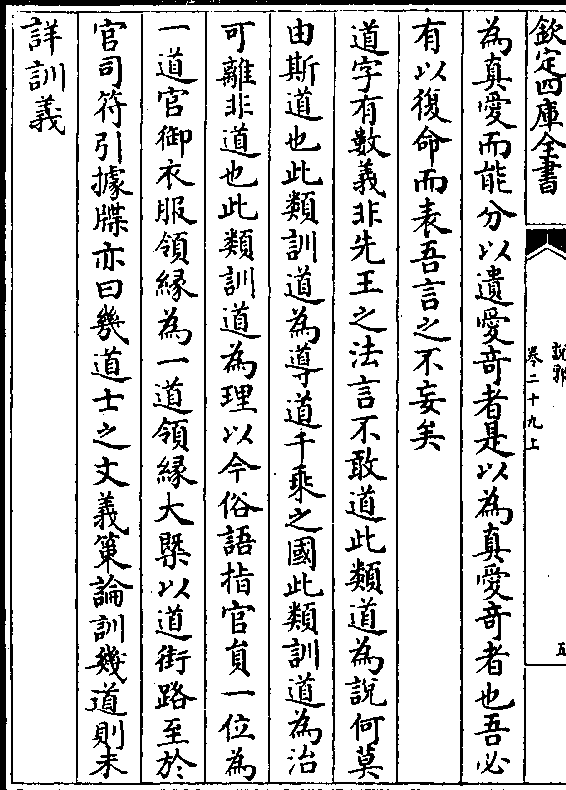 欽定四庫全書
說郛
卷二十九上
為真愛而能分以遺愛竒者是以為真愛竒者也吾必
有以復命而表吾言之不妄矣
道字有數義非先王之法言不敢道此類道為說何莫
由斯道也此類訓道為導道千乘之國此類訓道為治
可離非道也此類訓道為理以今俗語指官負一位為
一道官御衣服領緣為一道領緣大槩以道街路至於
官司符引據牒亦曰幾道士之文義策論訓幾道則未
詳訓義